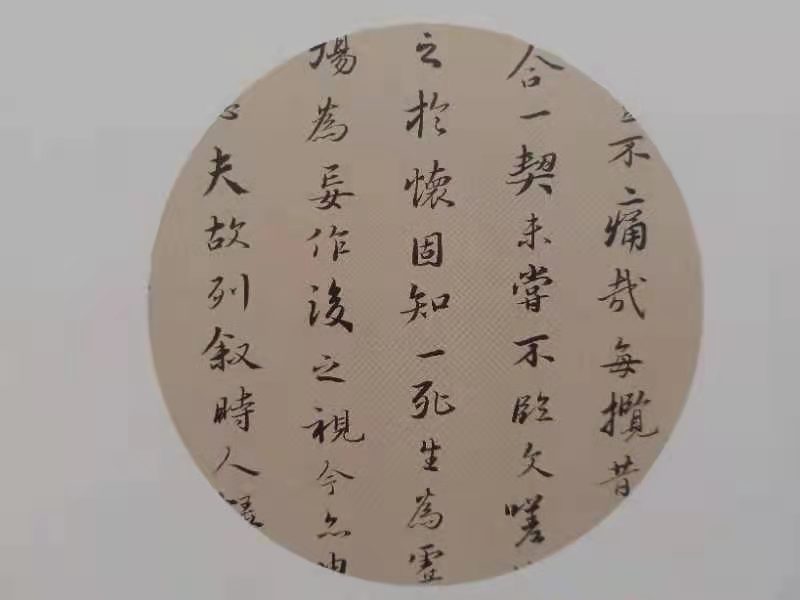 不痛哉每攬昔
合一契未嘗不臨文嗟
之於懷固知一死生為虛
殤為妄作後之視今亦由
夫故列敘時人